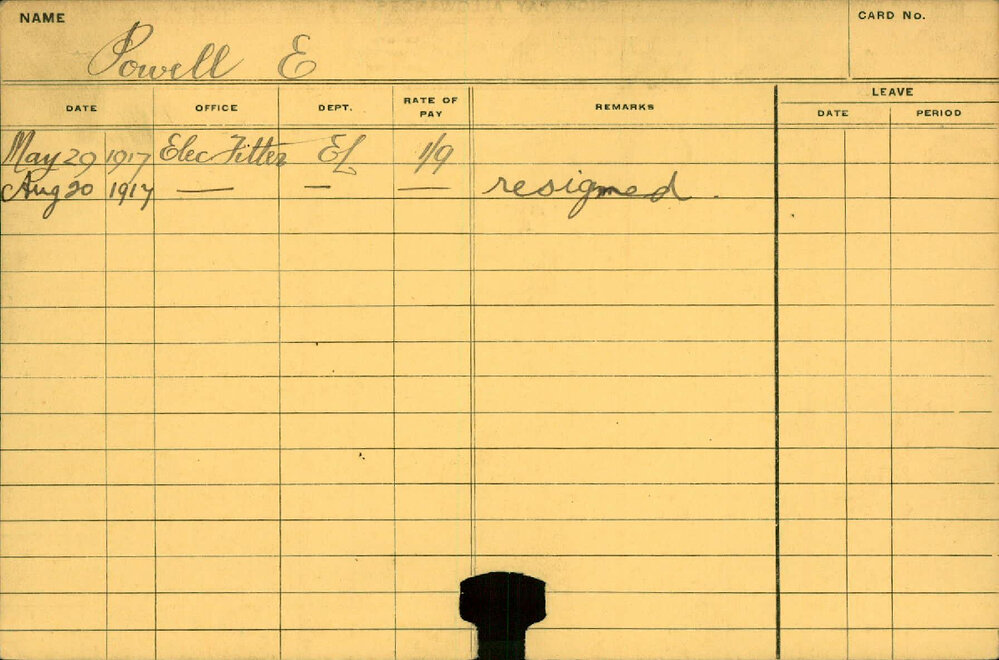 NAME
CARD No.
Powell E
DATE OFFICE DEPT. RATE OF PAY REMARKS LEAVE
DATE PERIOD
May 29 1917 Elec Fitter EL 1/9
Aug 20 1917 — — — resigned.